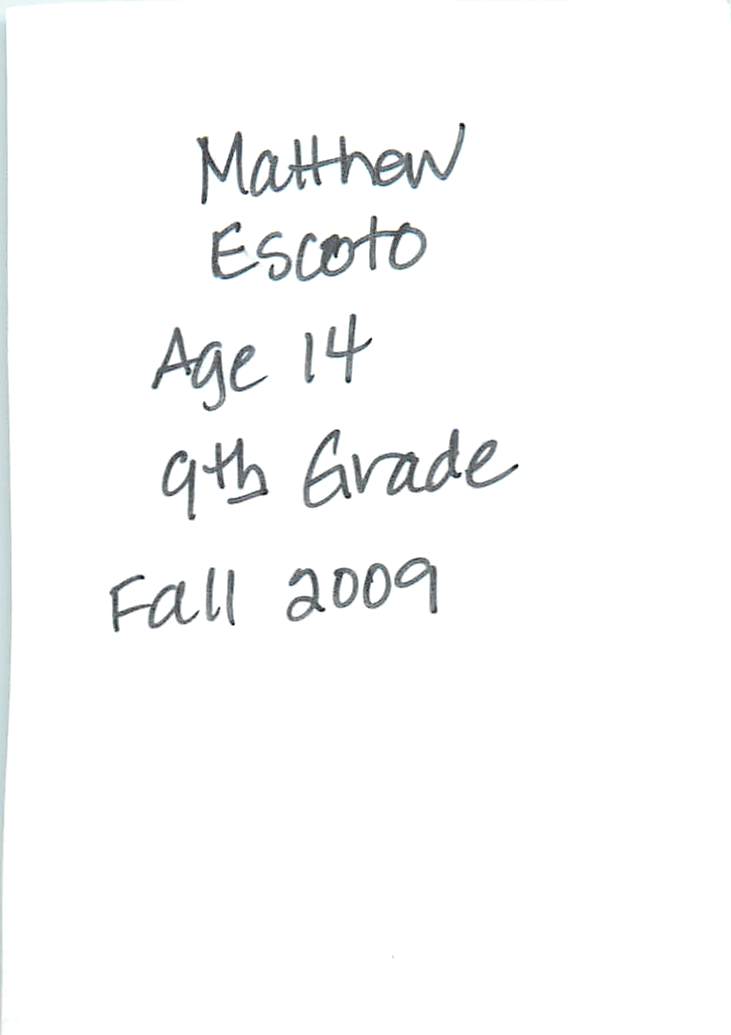 Matthew
Escoto
Age 14
9th Grade
Fall 2009